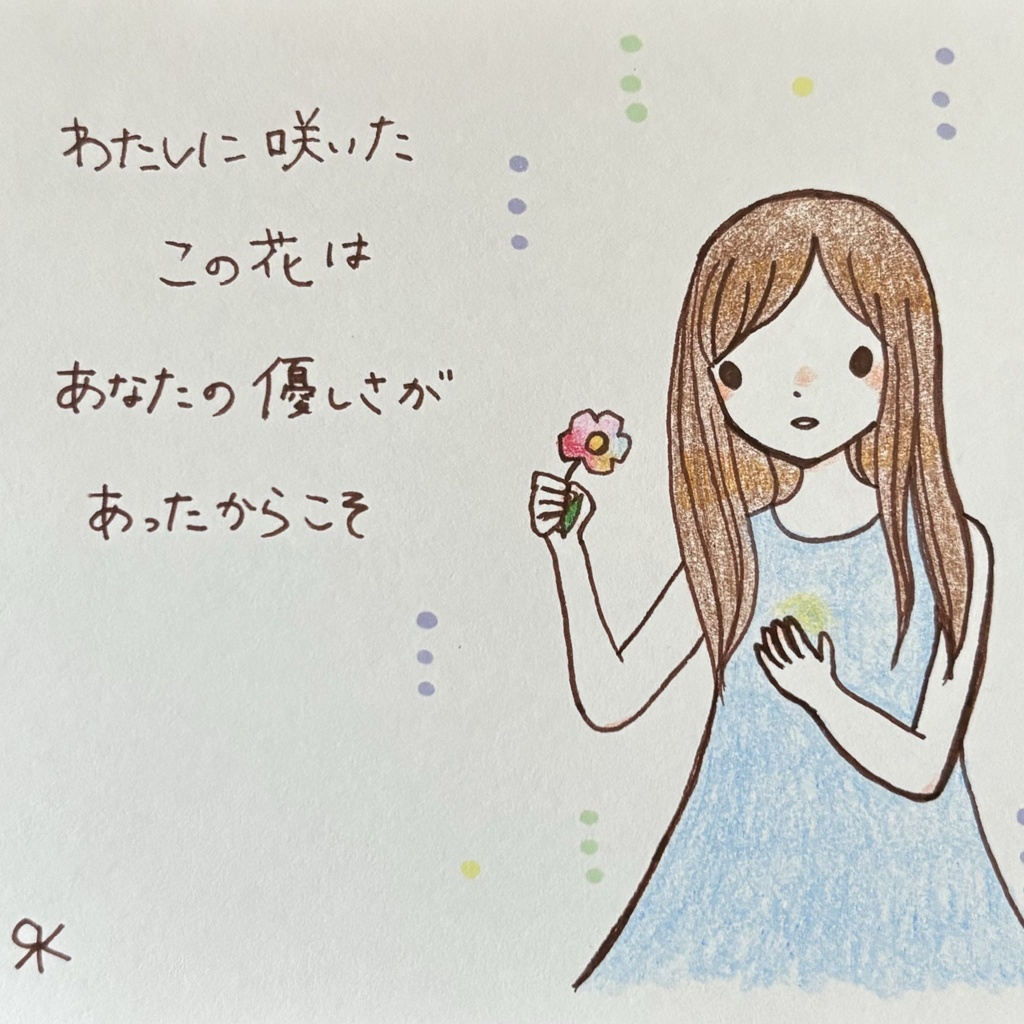 わたしに咲いた
この花は
あなたの優しさが
あったからこそ